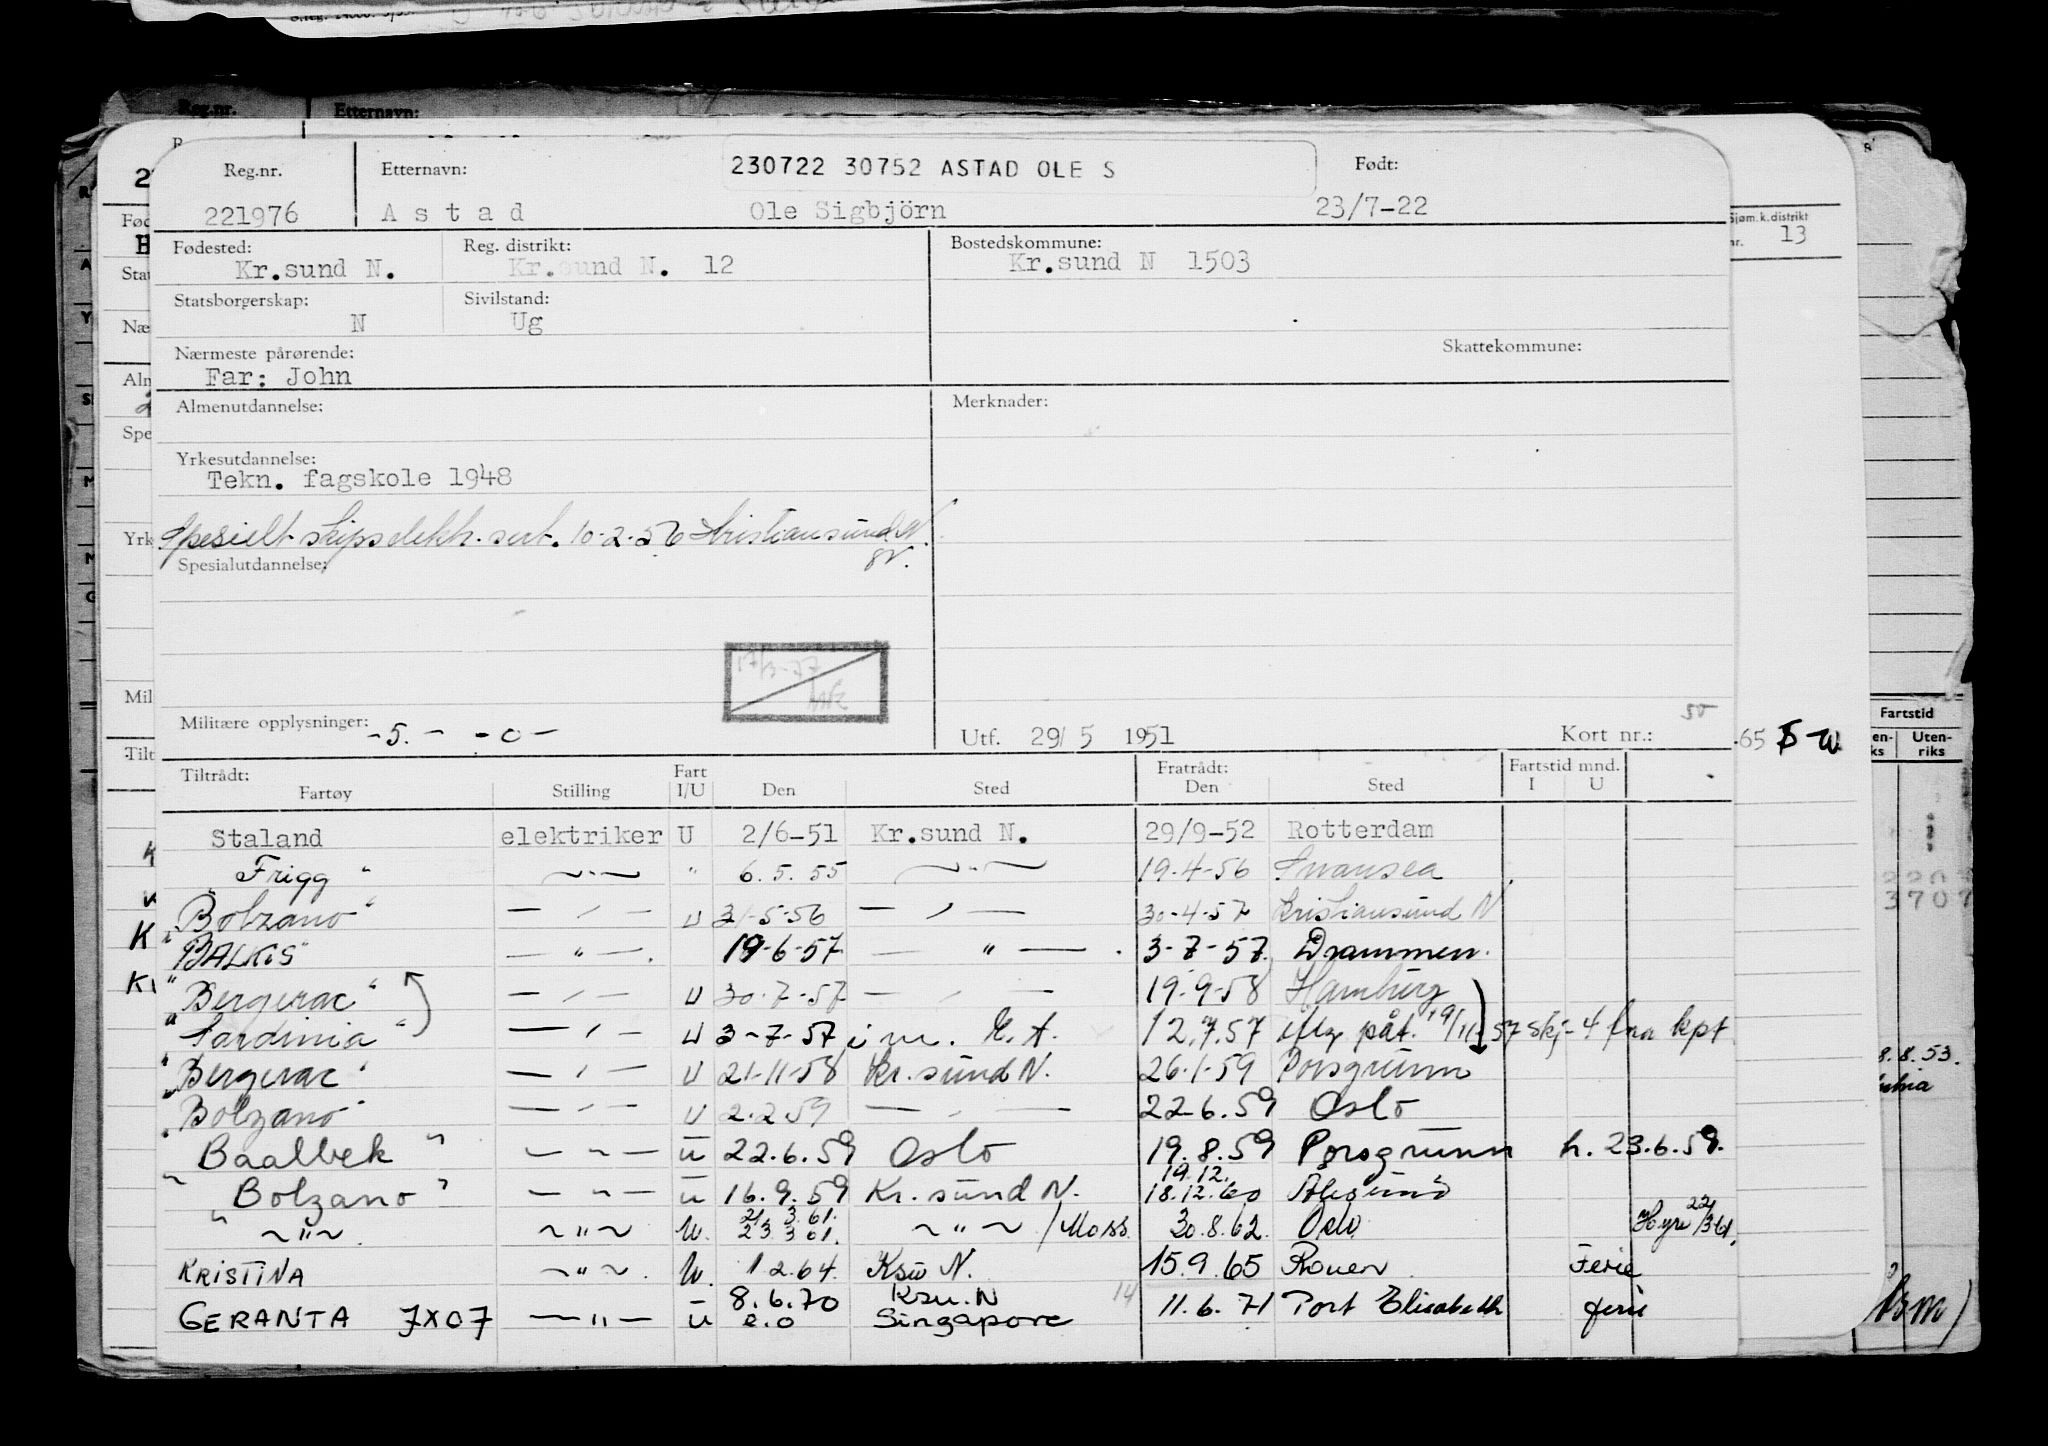 Reg.nr. Etternavn: 230722 30752 ASTAD OLE S Født:
221976 Astad Ole Sigbjörn 23/7-22
Fødested: Reg. distrikt: Bostedskommune:
Kr.sund N. Kr.sund N. 12 Kr.sund N 1503
Statsborgerskap: Sivilstand:
N Ug
Nærmeste pårørende: Skattekommune:
Far: John
Almenutdannelse: Merknader:
Yrkesutdannelse:
Tekn. fagskole 1948
Spesielt skipselektr. sert. 10-2-56 Kristiansund N.
Spesialutdannelse:
17/3-77
Militære opplysninger: -5.- -0- Utf. 29/ 5 1951 Kort nr.:
Tiltrådt: Fart Fratrådt: Fartstid mnd.
Fartøy Stilling I/U Den Sted Den Sted I U
Staland elektriker U 2/6-51 Kr.sund N. 29/9-52 Rotterdam
"Frigg" —"— " 6.5.55 —"— 19-4-56 Swansea
"Bolzano" —"— U 31-5-56 —"— 30-4-57 Kristiansund N
"BALKIS" —"— 19-6-57 —"— 3-7-57. Drammen.
"Bergerac" —"— U 30-7-57 —"— 19-9-58 Hamburg
"Sardinia" —"— U 3-7-57 i m. E.A. 12.7.57 iflg påt. 19/11-57 skj-4 fra kpt
"Bergerac" —"— U 21-11-58 Kr.sund N. 26-1-59 Porsgrunn
"Bolzano" —"— U 2.2.59 —"— 22-6.59 Oslo
Baalbek " —"— U 22.6.59 Oslo 19.8.59 Porsgrunn h. 23.6.59.
" Bolzano " —"— U 16.9.59 Kr.sund N. 19.12. 18.12.60 Ålesund
" ~"~ ~"~ U. 21.3.61. 23.3.61. ~"~ / Moss 30.8.62. Oslo Hyre 22/3 61.
KRISTINA ~"~. U. 1 2.64. Ksu N. 15.9.65 Rouen Ferie
GERANTA 7X07 —"— U 8.6.70 e.o Ksu.N Singapore 14 11.6.71 Port Elisabeth ferie
Sjøm.k.distrikt
nr. 13
Fartstid
Uten-
riks